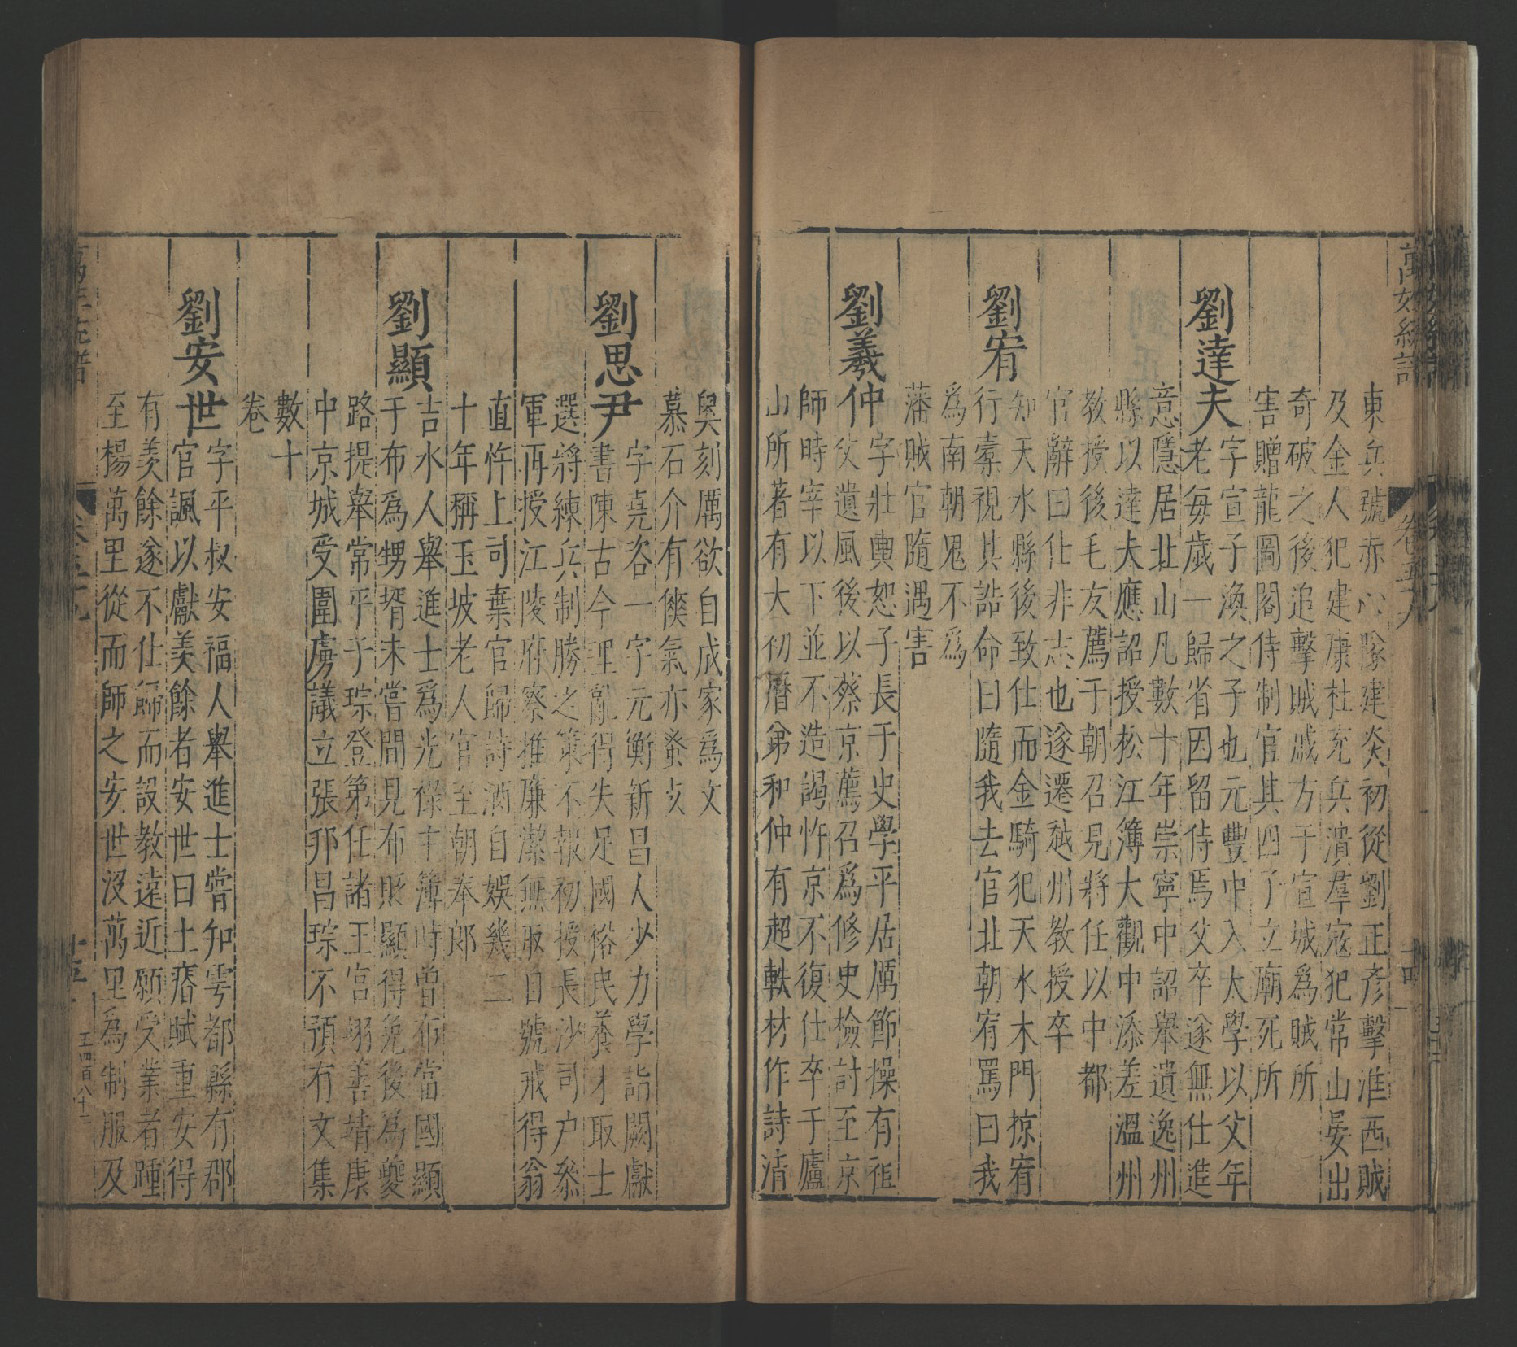 萬姓統譜
卷五十九
十四
東兵號赤心隊建炎初從劉正彥擊淮西賊
及金人犯建康杜充兵潰羣寇犯常山晏出
奇破之後追擊賊戚方于宣城爲賊所
害贈龍圖閣侍制官其四子立廟死所
劉達夫字宣子渙之子也元豐中入太學以父年
老每歲一歸省因留侍焉父卒遂無仕進
意隱居北山凡數十年崇寧中詔舉遺逸州
縣以達夫應詔授松江簿大觀中添差溫州
教授後毛友薦于朝召見將任以中都
官辭曰仕非志也遂遷越州教授卒
劉宥知天水縣後致仕而金騎犯天水木門掠宥
行橐視其誥命曰隨我去官北朝宥罵曰我
爲南朝鬼不爲
藩賊官隨遇害
劉羲仲字壯輿恕子長于史學平居厲節操有祖
父遺風後以蔡京薦召爲修史檢討至京
師時宰以下並不造謁忤京不復仕卒于廬
山所著有大初曆弟和仲有超軼材作詩清
奥刻厲欲自成家爲文
慕石介有俠氣亦蚤支
劉思尹字堯咨一字元衡新昌人少力學詣闕獻
書陳古今理亂得失足國俗民養才取士
選將練兵制勝之策不報初授長沙司户叅
軍再授江陵府察推廉潔無取自號戒得翁
直忤上司棄官歸詩酒自娛幾二
十年稱玉坡老人官至朝奉郎
劉顯吉水人舉進士爲光祿主簿時曾布當國顯
于布爲甥壻未嘗間見布敗顯得免後爲夔
路提舉常平子琮登第任諸王宮翊善靖康
中京城受圍虜議立張邦昌琮不預有文集
數十
卷
劉安世字平叔安福人舉進士嘗知雩都縣有郡
官諷以獻羨餘者安世曰土瘠賦重安得
有羨餘遂不仕歸而設教遠近願受業者踵
至楊萬里從而師之安世沒萬里爲制服及
萬姓統譜
卷五十九
十五